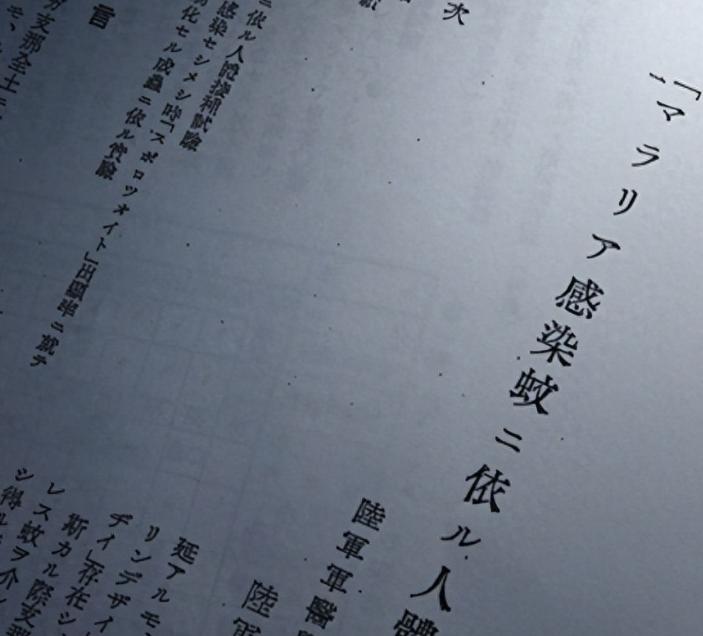 「マラリア感染蚊ニ依ル人體
陸軍軍醫
陸軍
次
ニ依ル人體接種試驗
感染セシメシ時「スポロツオイト」出現率ニ就テ
化セル成蟲ニ依ル實驗
言
支那全土ニ
延アルモ
リンデザイ
デイ」存在シ
斯カル際支那
レス蚊ヲ介シ
シ得